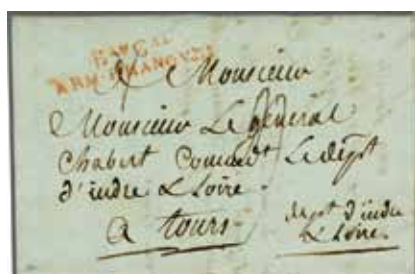 ARM. D'HANOVRE
A Monsieur
Monsieur Le général
Chabert Commdt Le dépt
d'indre & Loire.
a tours
dept d'indre
& Loire.